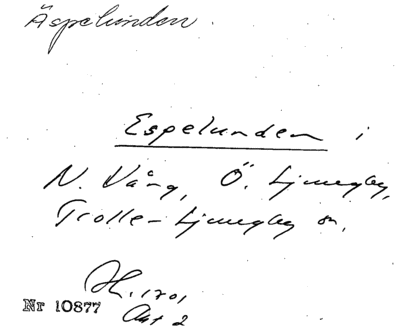 Äspelunden.
Espelunden i
N. Vång, Ö. Ljungby,
Trolle-Ljungby sn.
H. 1701
Akt 2
Nr 10877